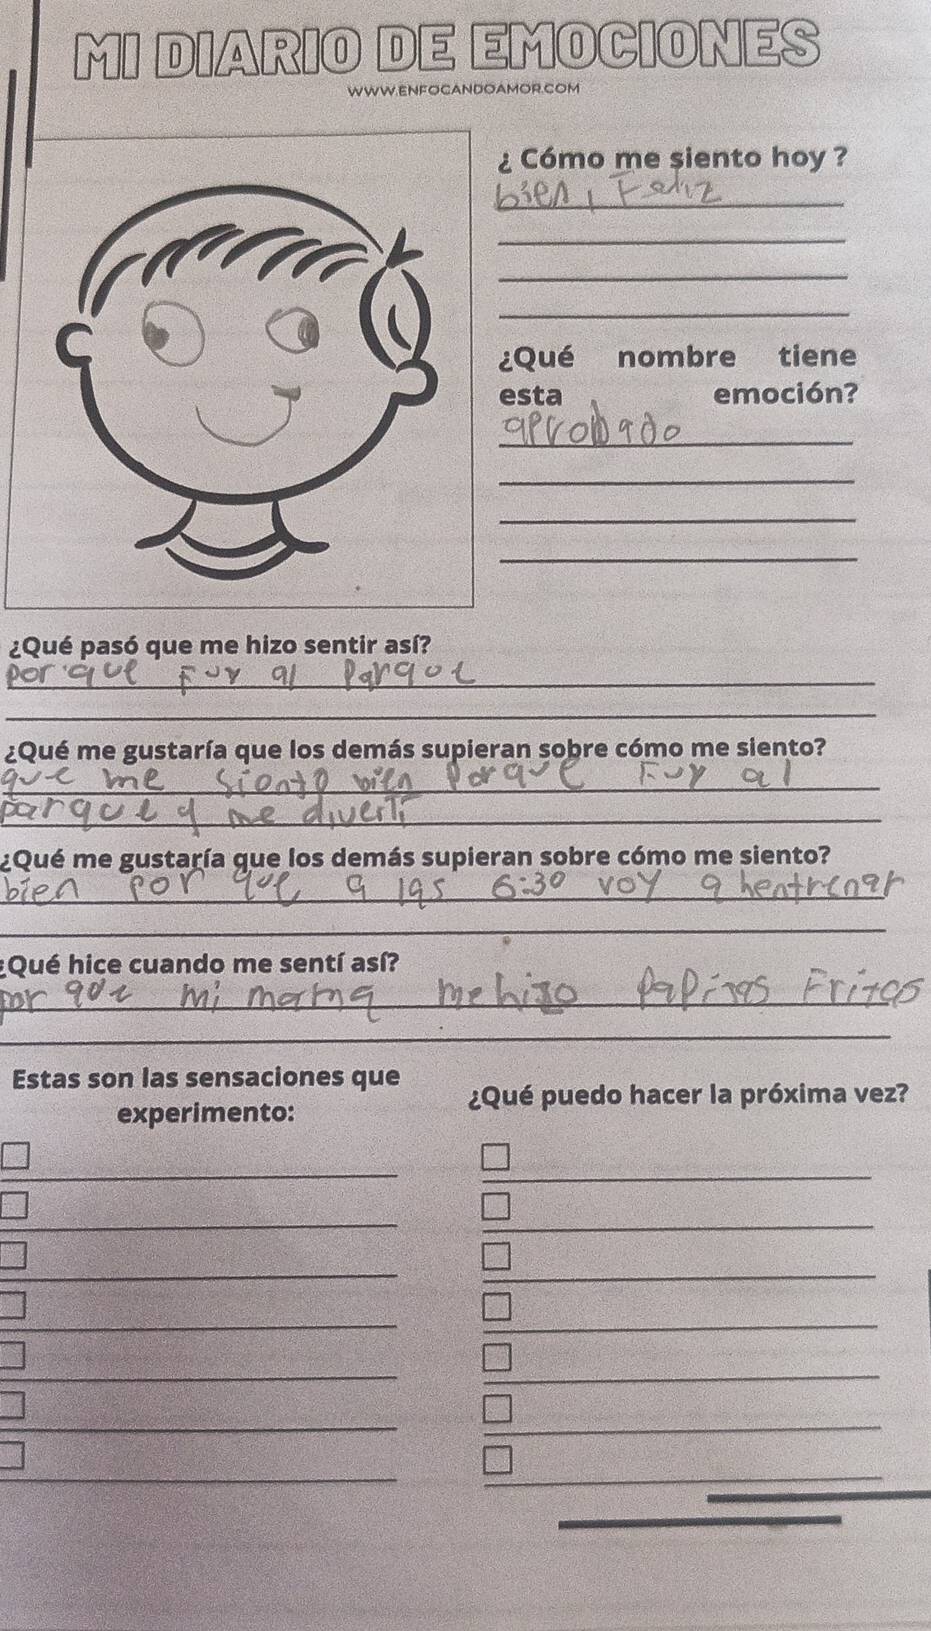 MI DIARIO DE EMOCIONES
WWW.ENFOCANDOAMOR.COM
¿ Cómo me siento hoy ?
bien, Feliz
¿Qué nombre tiene
esta emoción?
aprobado
¿Qué pasó que me hizo sentir así?
por que Fuy al Parque
¿Qué me gustaría que los demás supieran sobre cómo me siento?
que me siento bien Porque Fuy al
parque y me diverti
¿Qué me gustaría que los demás supieran sobre cómo me siento?
bien por que a las 6:30 voy a hentrenar
¿Qué hice cuando me sentí así?
por que mi mama me hizo Papitas Fritas
Estas son las sensaciones que
experimento:
¿Qué puedo hacer la próxima vez?